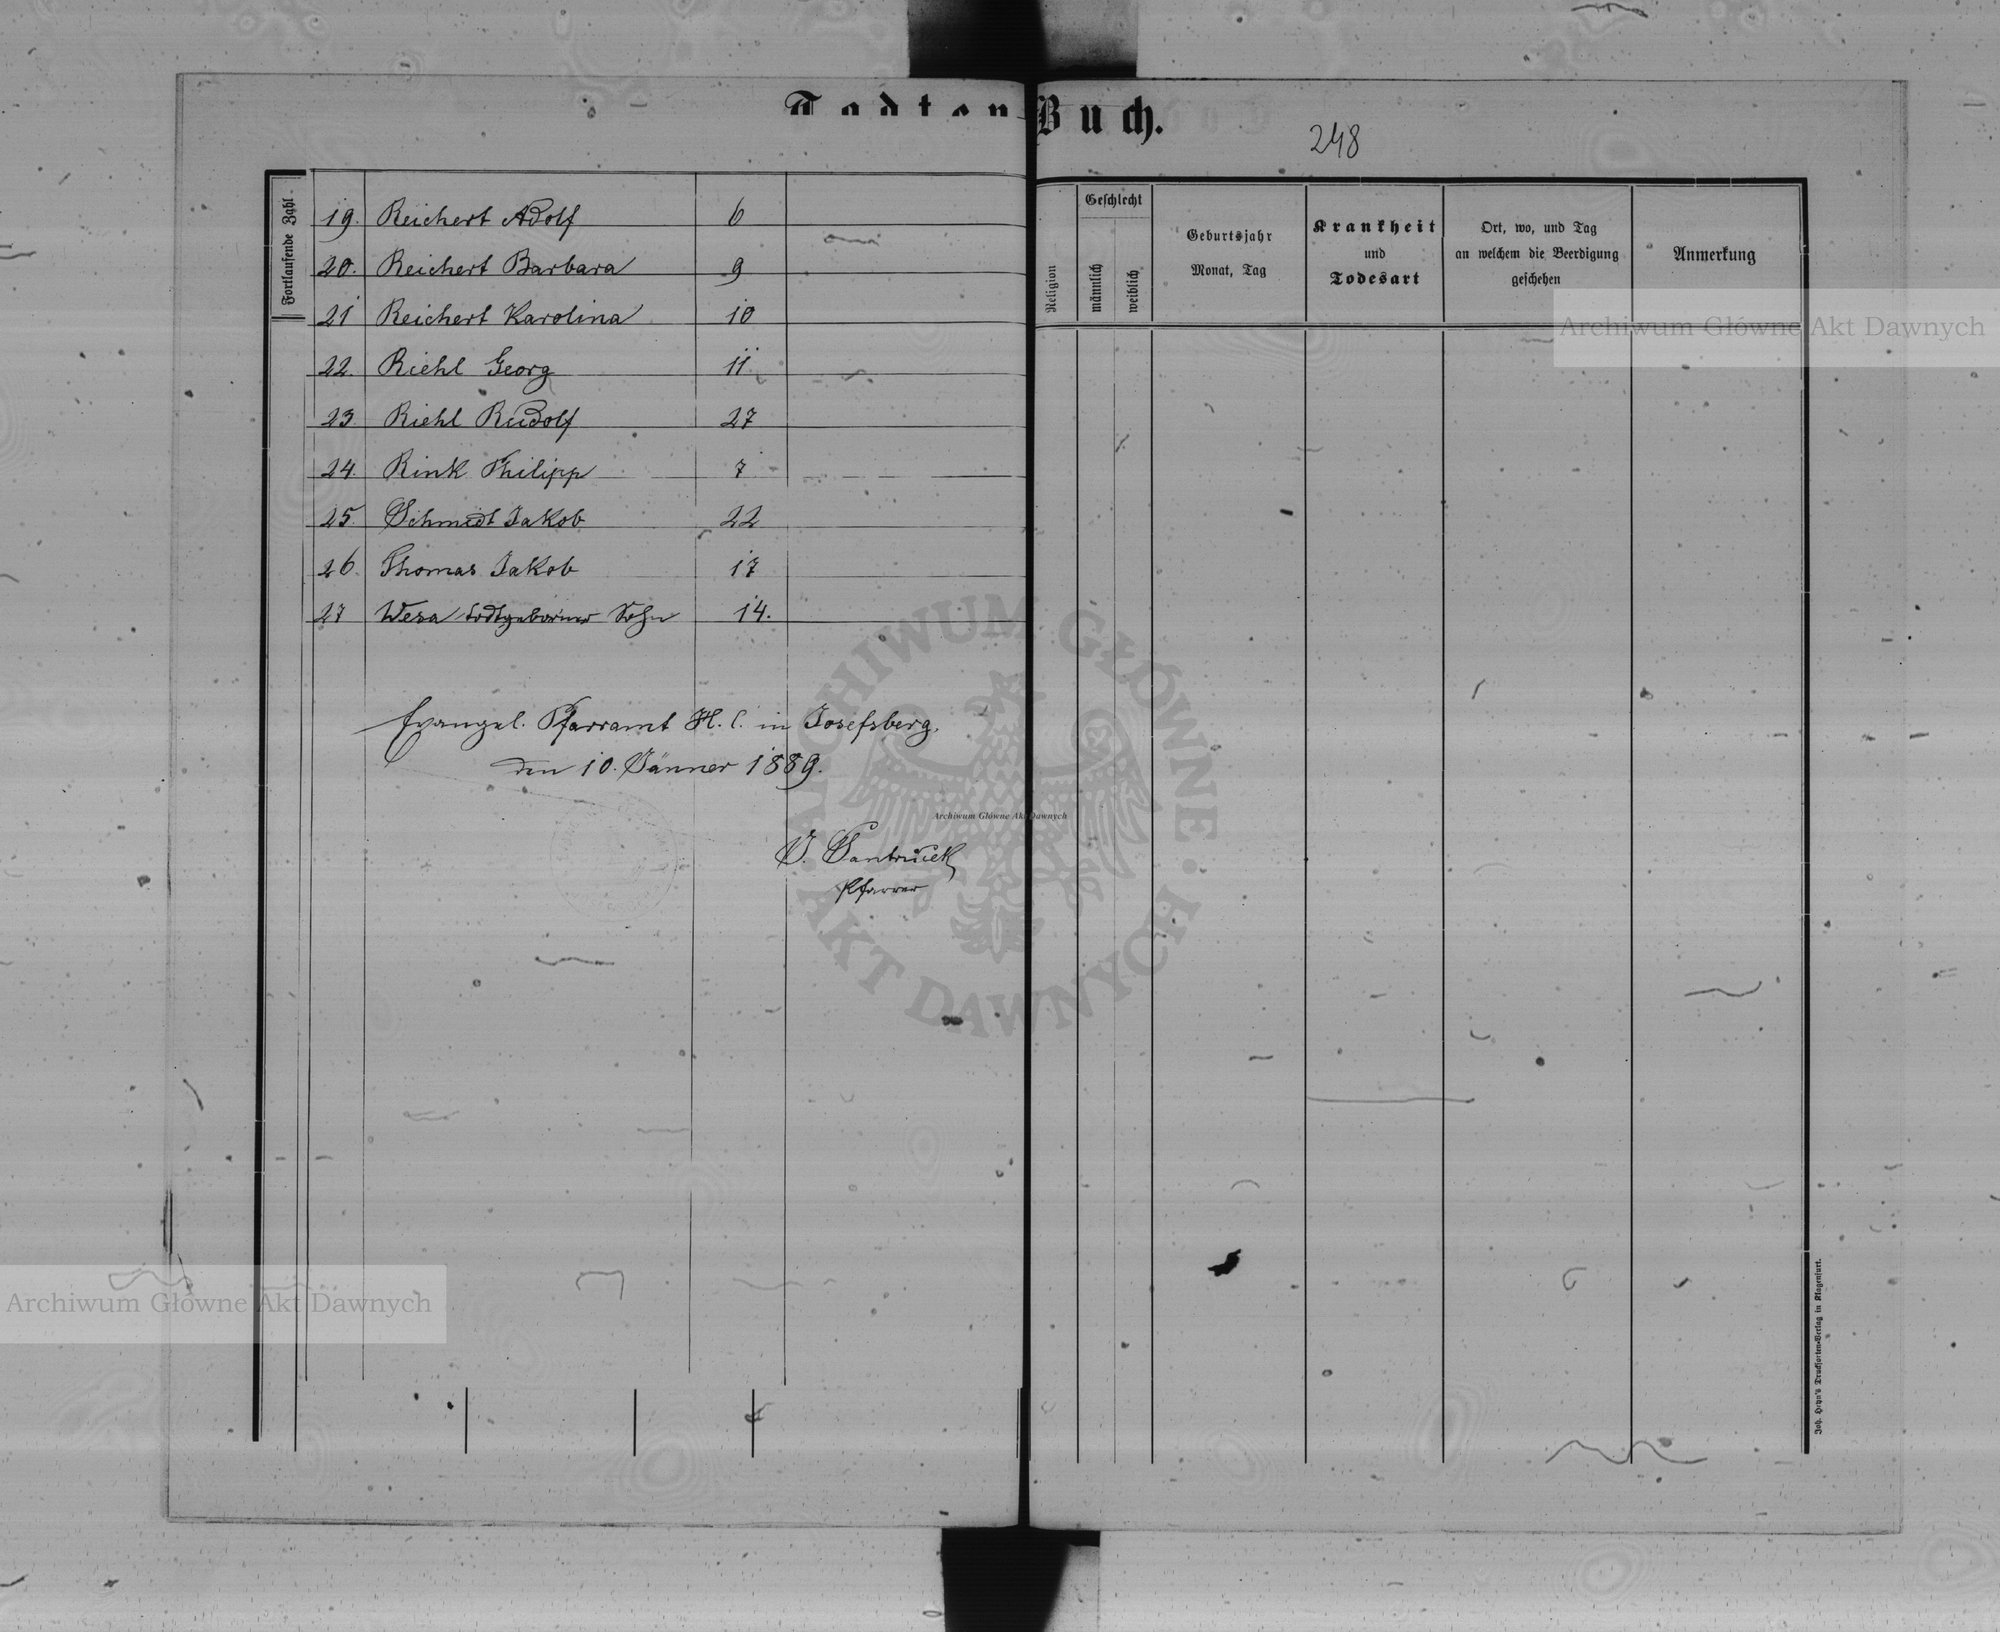 Todten Buch.
248
Fortlaufende Zahl
19. Reichert Adolf 6
20. Reichert Barbara 9
21 Reichert Karolina 10
22. Riehl Georg 11
23. Riehl Rudolf 27
24. Rink Philipp 7
25. Schmidt Jakob 22
26. Thomas Jakob 17
27 Wesa todtgeborner Sohn 14.
Evangel. Pfarramt H. C. in Josefsberg.
den 10. Jänner 1889.
Pfarrer
Religion
Geschlecht
männlich
weiblich
Geburtsjahr
Monat, Tag
Krankheit
und
Todesart
Ort, wo, und Tag
an welchem die Beerdigung
geschehen
Anmerkung
Joh. Heyn's Drucksorten-Verlag in Klagenfurt.
Archiwum Główne Akt Dawnych
ARCHIWUM GŁÓWNE · AKT DAWNYCH ·
Archiwum Główne Akt Dawnych
Archiwum Główne Akt Dawnych